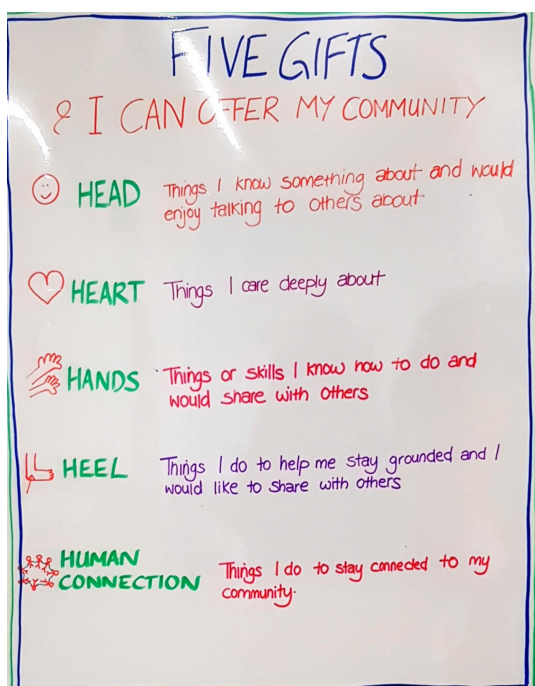 FIVE GIFTS
& I CAN OFFER MY COMMUNITY
HEAD Things I know something about and would
enjoy talking to others about
HEART Things I care deeply about
HANDS Things or skills I know how to do and
would share with others
HEEL Things I do to help me stay grounded and I
would like to share with others
HUMAN
CONNECTION
Things I do to stay connected to my
community.